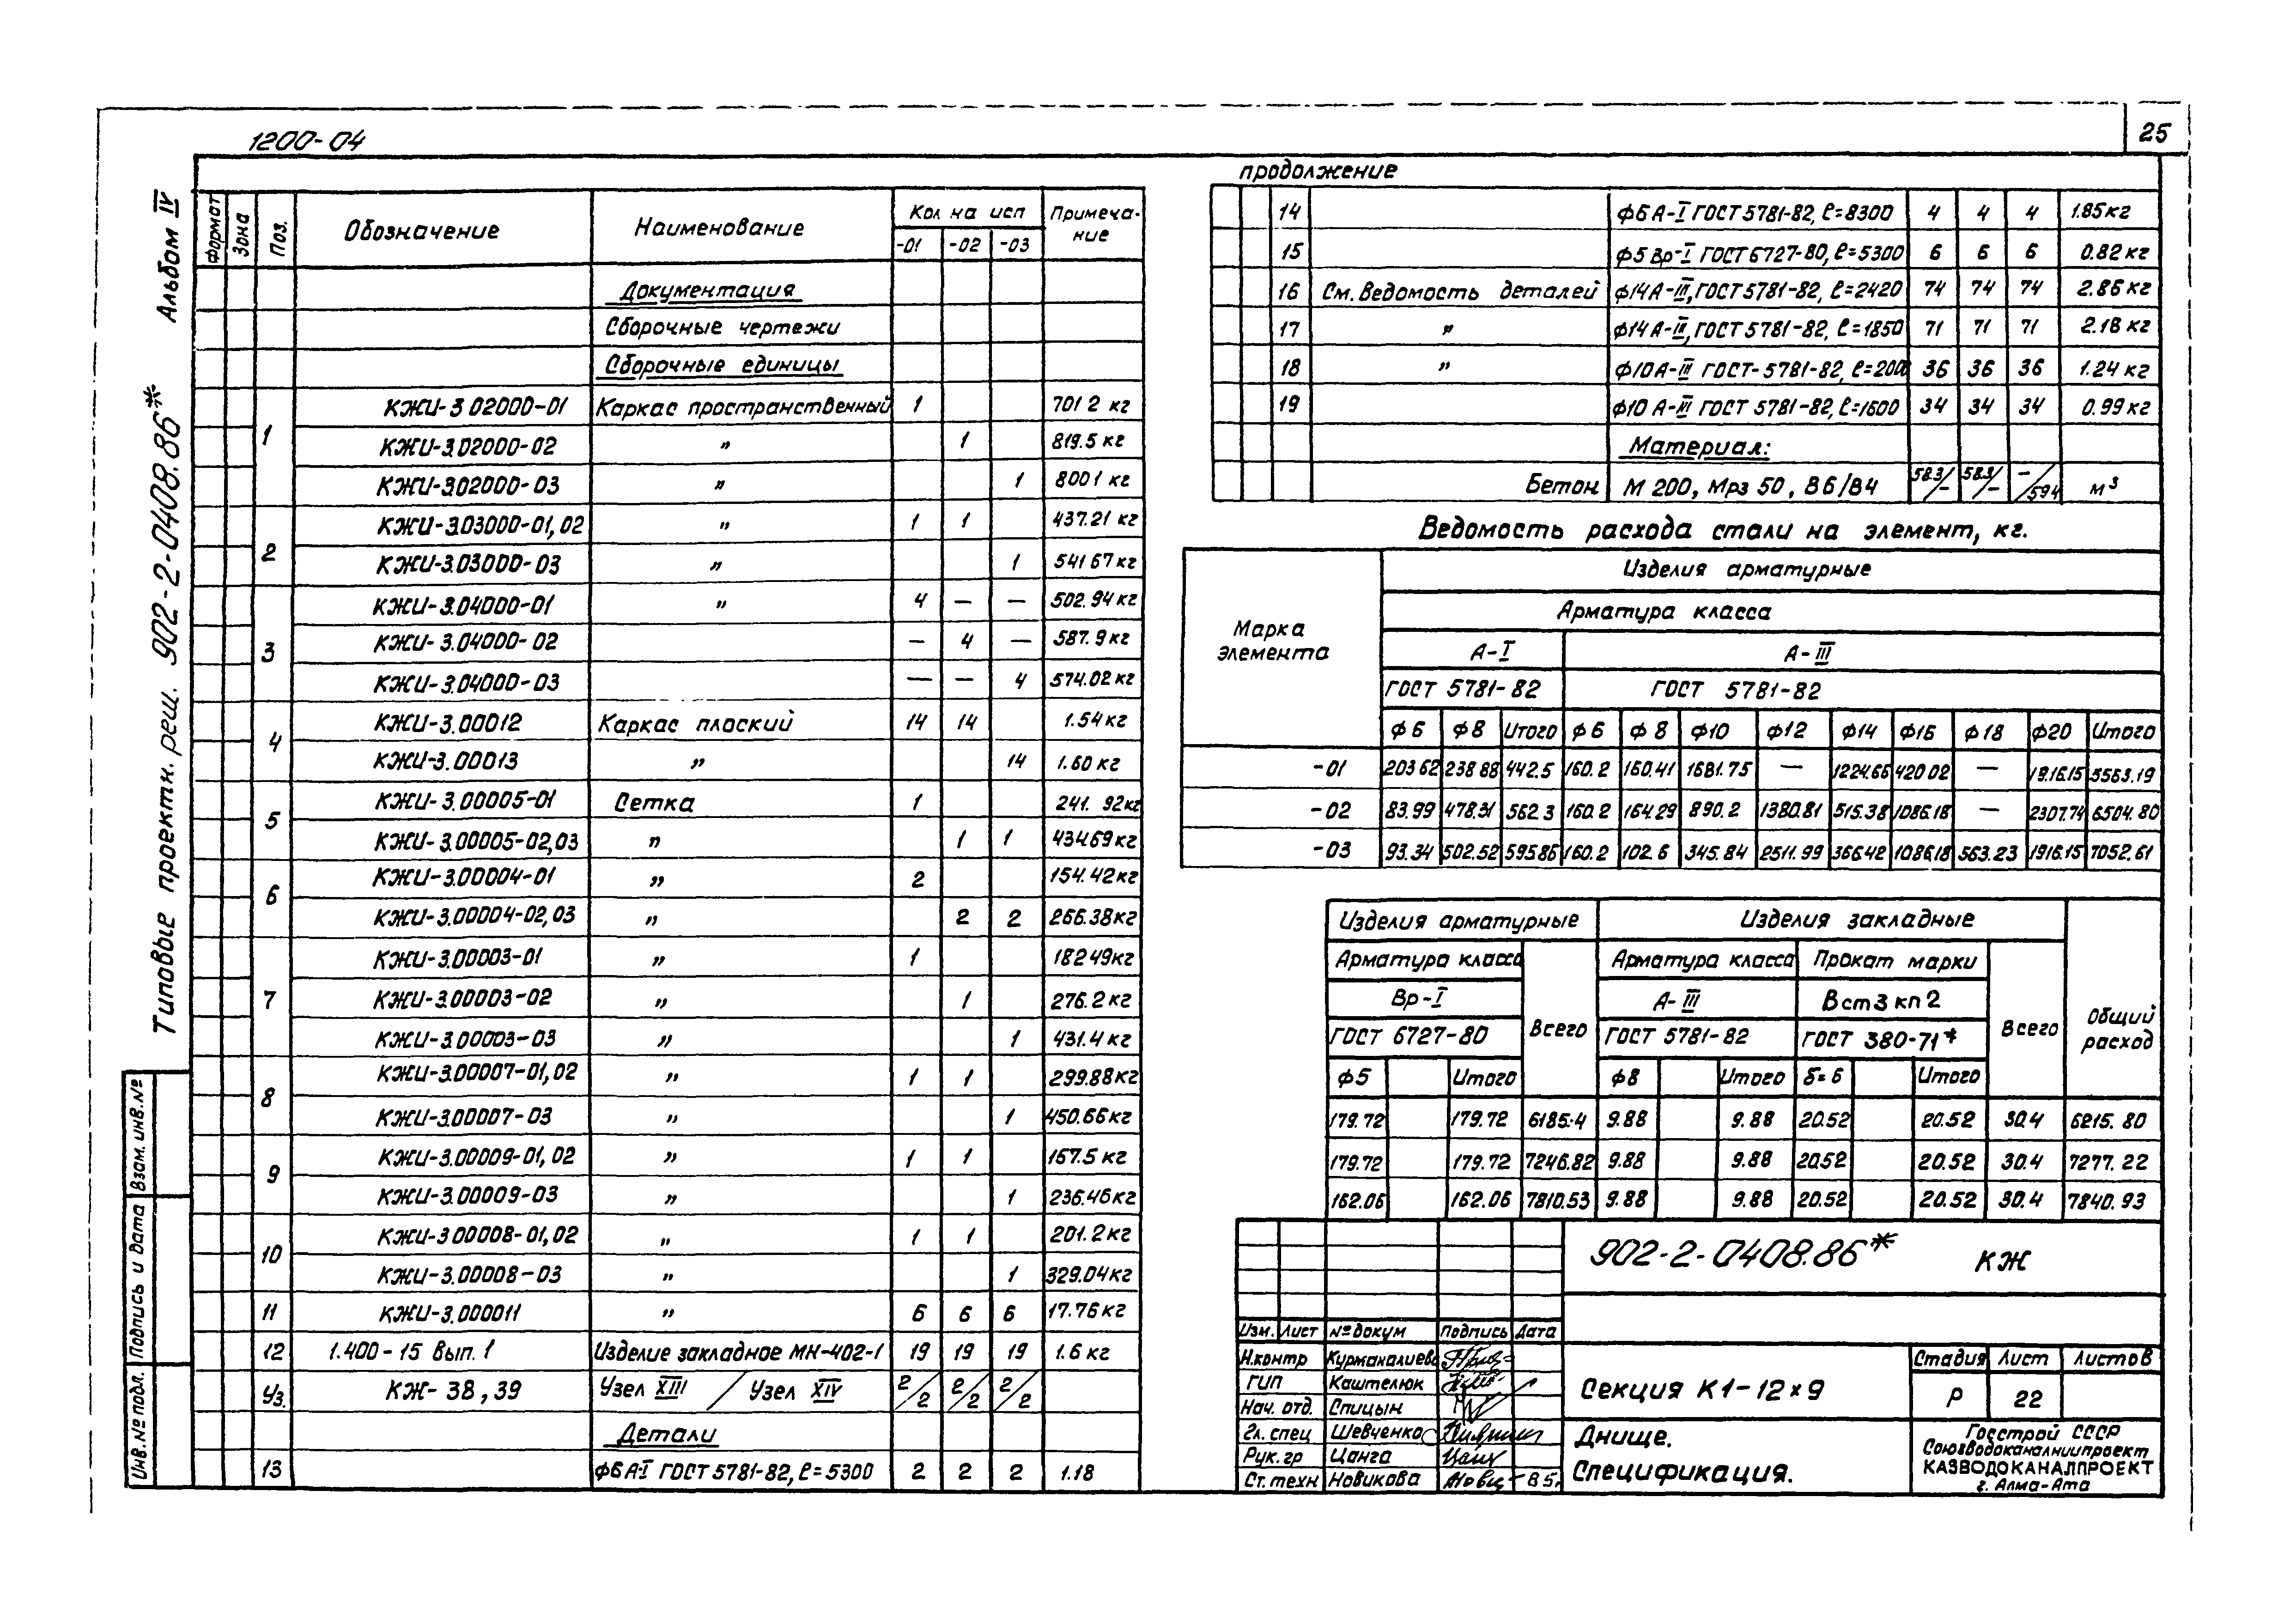 25
1200-04
Альбом IV
Типовые проектн. реш. 902-2-0408.86*
Взам. инв. №
Подпись и дата
Инв. № подл.
Формат Зона Поз. Обозначение Наименование Кол на исп Примечание
-01 -02 -03
Документация
Сборочные чертежи
Сборочные единицы
1 КЖИ-3 02000-01 Каркас пространственный 1 701 2 кг
КЖИ-3.02000-02 " 1 819.5 кг
КЖИ-302000-03 " 1 800 1 кг
2 КЖИ-3.03000-01,02 " 1 1 437.21 кг
КЖИ-3.03000-03 " 1 541 67 кг
3 КЖИ-3.04000-01 " 4 — — 502.94 кг
КЖИ-3.04000-02 — 4 — 587.9 кг
КЖИ-3.04000-03 — — 4 574.02 кг
4 КЖИ-3.00012 Каркас плоский 14 14 1.54 кг
КЖИ-3.00013 " 14 1.60 кг
5 КЖИ-3.00005-01 Сетка 1 241. 92 кг
КЖИ-3.00005-02,03 " 1 1 434.69 кг
6 КЖИ-3.00004-01 " 2 154.42 кг
КЖИ-3.00004-02,03 " 2 2 266.38 кг
7 КЖИ-3.00003-01 " 1 182 49 кг
КЖИ-3.00003-02 " 1 276.2 кг
КЖИ-3.00003-03 " 1 431.4 кг
8 КЖИ-3.00007-01,02 " 1 1 299.88 кг
КЖИ-3.00007-03 " 1 450.66 кг
9 КЖИ-3.00009-01,02 " 1 1 157.5 кг
КЖИ-3.00009-03 " 1 236.46 кг
10 КЖИ-3 00008-01,02 " 1 1 201.2 кг
КЖИ-3.00008-03 " 1 329.04 кг
11 КЖИ-3.000011 " 6 6 6 17.76 кг
12 1.400-15 Вып. 1 Изделие закладное МН-402-1 19 19 19 1.6 кг
Уз. КЖ-38,39 Узел XIII / Узел XIV 2/2 2/2 2/2
Детали
13 ф6 А-I ГОСТ 5781-82, ℓ=5300 2 2 2 1.18
продолжение
14 ф6 А-I ГОСТ 5781-82, ℓ=8300 4 4 4 1.85 кг
15 ф5 Вр-I ГОСТ 6727-80, ℓ=5300 6 6 6 0.82 кг
16 См. Ведомость деталей ф14 А-III, ГОСТ 5781-82, ℓ=2420 74 74 74 2.86 кг
17 " ф14 А-III, ГОСТ 5781-82, ℓ=1850 71 71 71 2.18 кг
18 " ф10 А-III ГОСТ-5781-82, ℓ=2000 36 36 36 1.24 кг
19 ф10 А-III ГОСТ 5781-82, ℓ=1600 34 34 34 0.99 кг
Материал:
Бетон М 200, Мрз 50, В6/В4 58.3/— 58.3/— —/59 4 м³
Ведомость расхода стали на элемент, кг.
Марка элемента Изделия арматурные
Арматура класса
А-I А-III
ГОСТ 5781-82 ГОСТ 5781-82
ф6 ф8 Итого ф6 ф8 ф10 ф12 ф14 ф16 ф18 ф20 Итого
-01 203 62 238 88 442.5 160.2 160.41 1681.75 — 1224.66 420 02 — 1916.15 5563.19
-02 83.99 478.31 562 3 160.2 164.29 890.2 1380.81 515.38 1086.18 — 2307.74 6504.80
-03 93.34 502.52 595.86 160.2 102.6 345.84 2511.99 366.42 1086.18 563.23 1916.15 7052.61
Изделия арматурные Изделия закладные Общий расход
Арматура класса Всего Арматура класса Прокат марки Всего
Вр-I А-III В ст3 кп 2
ГОСТ 6727-80 ГОСТ 5781-82 ГОСТ 380-71*
ф5 Итого ф8 Итого δ=6 Итого
179.72 179.72 6185.4 9.88 9.88 20.52 20.52 30.4 6215.80
179.72 179.72 7246.82 9.88 9.88 20.52 20.52 30.4 7277.22
162.06 162.06 7810.53 9.88 9.88 20.52 20.52 30.4 7840.93
902-2-0408.86* КЖ
Изм. Лист № докум Подпись Дата
Н.контр Курманалиева
ГИП Каштелюк
Нач. отд. Спицын
Гл. спец Шевченко
Рук. гр Цанга
Ст. техн Новикова 85г
Секция К1-12×9
Стадия Лист Листов
Р 22
Днище.
Спецификация.
Госстрой СССР
Союзводоканалниипроект
КАЗВОДОКАНАЛПРОЕКТ
г. Алма-Ата